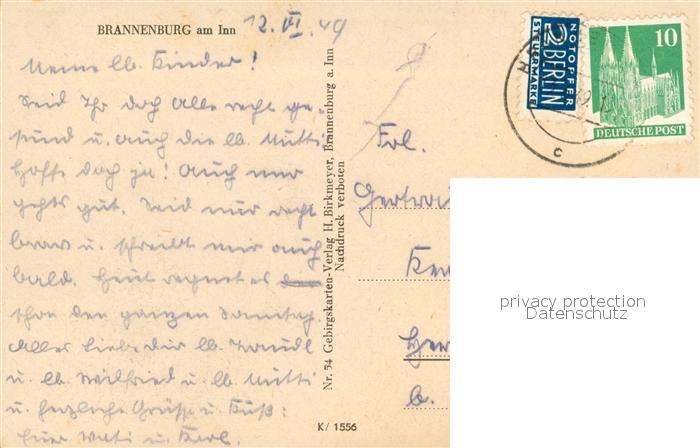 BRANNENBURG am Inn 12. VI. 49
Meine lb. Kinder!
Seid Ihr doch Alle recht ge-
sund u. auch die lb. Mutti
hoffe doch ja! Auch mir
gehts gut. Seid nur recht
brav u. schreibt mir auch
bald. Heut regnet es
schon den ganzen Samstag.
Alles Liebe dir lb. Traudl
u. lb. Wilfried u. lb. Mutti
u. herzliche Grüße u. Kuß:
Euer Vati u. Karl.
Nr. 54 Gebirgskarten-Verlag H. Birkmeyer, Brannenburg a. Inn
Nachdruck verboten
K/ 1556
NOTOPFER
2 BERLIN
STEUERMARKE
10
DEUTSCHE POST
c
Frl.
b.
privacy protection
Datenschutz